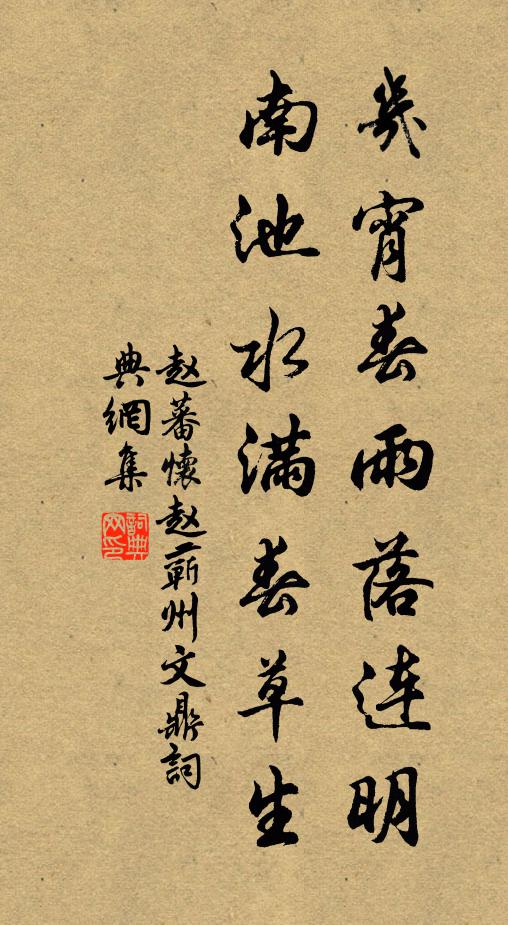 幾宵春雨落連明
南池水滿春草生
赵蕃懷赵蘄州文鼎詞
典網集
詞典網印